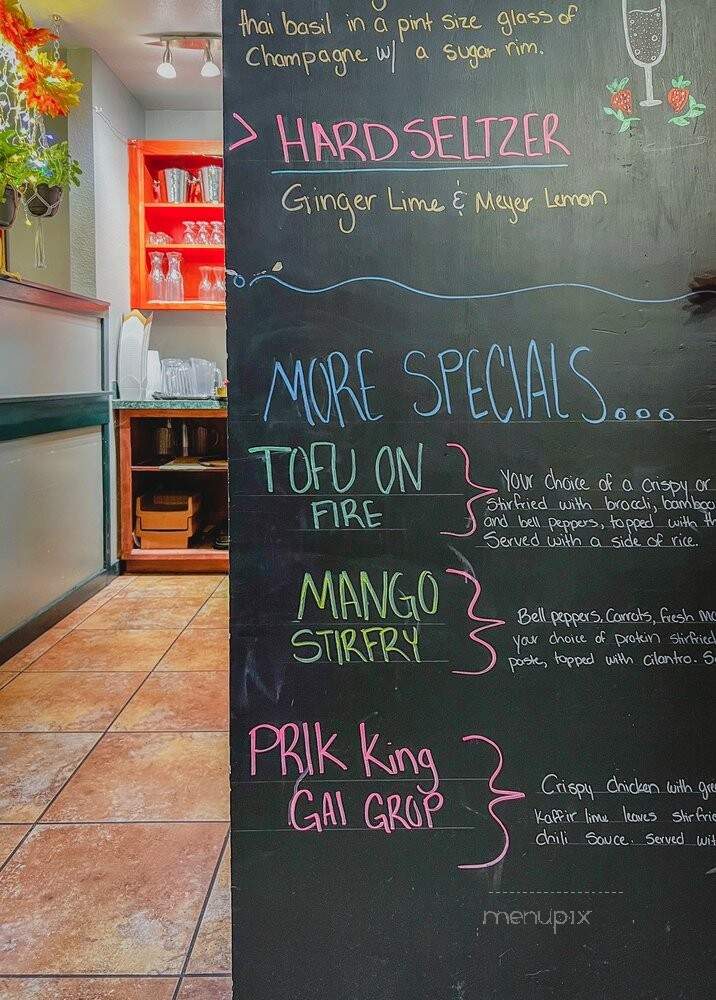 thai basil in a pint size glass of
Champagne w/ a sugar rim.
> HARD SELTZER
Ginger Lime & Meyer Lemon
MORE SPECIALS...
TOFU ON
FIRE
Your choice of a crispy or
Stirfried with brocoli, bamboo
and bell peppers, topped with
Served with a side of rice.
MANGO
STIRFRY
Bell peppers, Carrots, fresh
your choice of protein stirfried
paste, topped with cilantro.
PRIK King
GAI GROP
Crispy chicken with
Kaffir lime leaves
Chili Sauce. Served
menupix